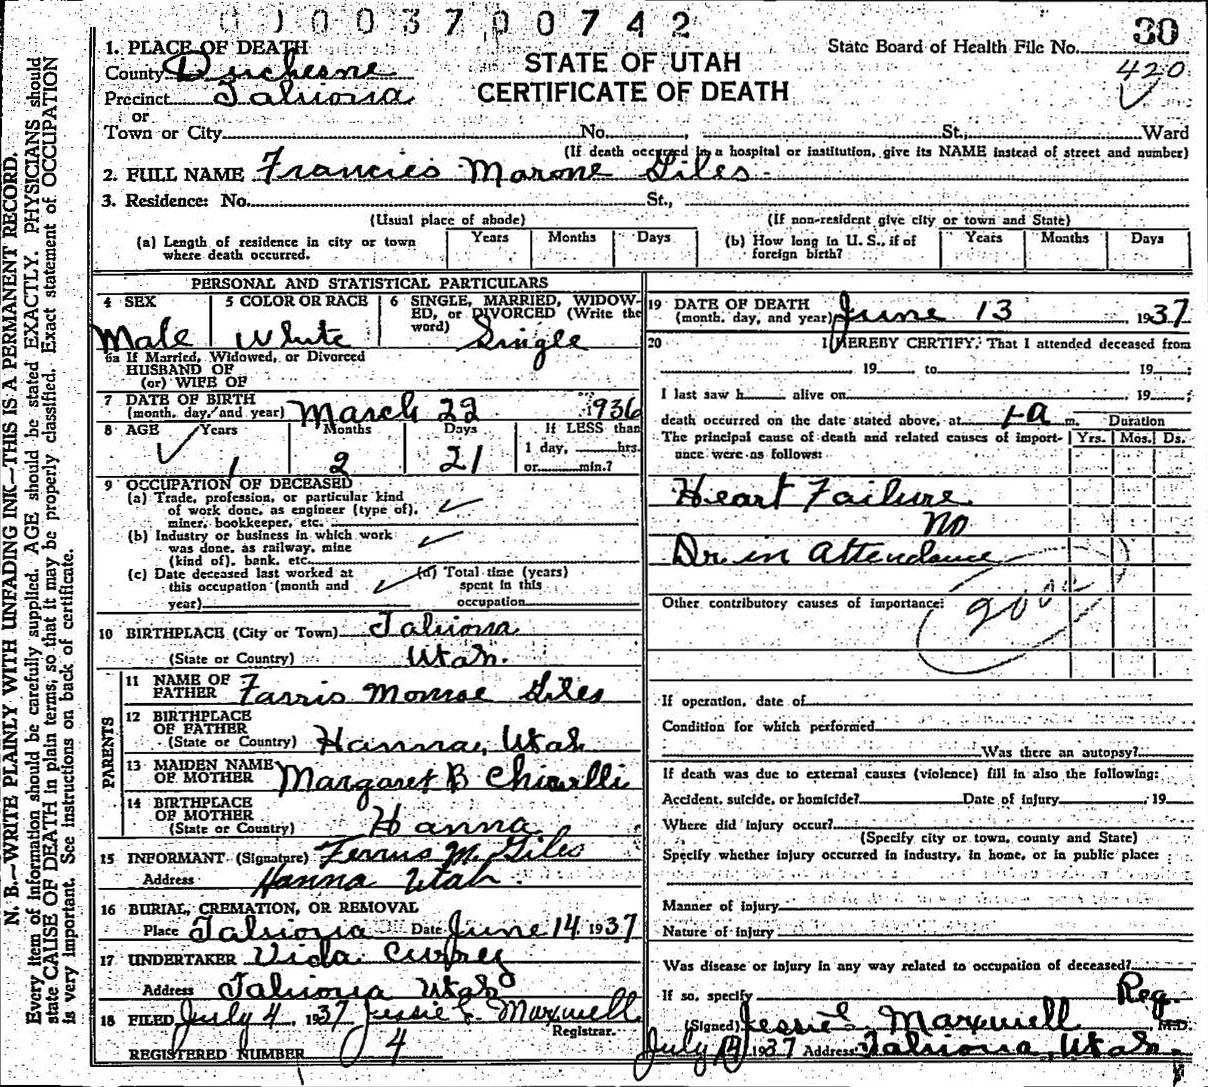 0 0 0 3 7 0 0 7 4 2
30
State Board of Health File No.
420
STATE OF UTAH
CERTIFICATE OF DEATH
1. PLACE OF DEATH
County Duchesne
Precinct Tabiona
or
Town or City No. , St., Ward
(If death occurred in a hospital or institution, give its NAME instead of street and number)
2. FULL NAME Francies Marone Giles
3. Residence: No. St.,
(Usual place of abode) (If non-resident give city or town and State)
(a) Length of residence in city or town where death occurred. Years Months Days (b) How long in U. S., if of foreign birth? Years Months Days
PERSONAL AND STATISTICAL PARTICULARS
4 SEX Male
5 COLOR OR RACE White
6 SINGLE, MARRIED, WIDOWED, or DIVORCED (Write the word) Single
6a If Married, Widowed, or Divorced
HUSBAND OF
(or) WIFE OF
7 DATE OF BIRTH
(month, day, and year) March 22 1936
8 AGE Years Months Days If LESS than
1 2 21 1 day, hrs.
or min.?
9 OCCUPATION OF DECEASED
(a) Trade, profession, or particular kind
of work done, as engineer (type of),
miner, bookkeeper, etc.
(b) Industry or business in which work
was done, as railway, mine
(kind of), bank, etc.
(c) Date deceased last worked at
this occupation (month and
year)
(d) Total time (years)
spent in this
occupation
10 BIRTHPLACE (City or Town) Tabiona
(State or Country) Utah.
PARENTS
11 NAME OF
FATHER Farris Monroe Giles
12 BIRTHPLACE
OF FATHER
(State or Country) Hanna, Utah
13 MAIDEN NAME
OF MOTHER Margaret B
14 BIRTHPLACE
OF MOTHER
(State or Country) Hanna
15 INFORMANT (Signature) Ferris M. Giles
Address Hanna Utah.
16 BURIAL, CREMATION, OR REMOVAL
Place Tabiona Date June 14 1937
17 UNDERTAKER Vida
Address Tabiona Utah
18 FILED July 4, 1937 Jessie L. Maxwell
Registrar.
REGISTERED NUMBER 4
19 DATE OF DEATH
(month, day, and year) June 13 1937
20 I HEREBY CERTIFY, That I attended deceased from
19 , to 19 ;
I last saw h alive on 19 ;
death occurred on the date stated above, at 1-a m. Duration
The principal cause of death and related causes of importance were as follows: Yrs. Mos. Ds.
Heart Failure
No
Dr. in Attendance
Other contributory causes of importance:
If operation, date of
Condition for which performed
Was there an autopsy?
If death was due to external causes (violence) fill in also the following:
Accident, suicide, or homicide? Date of injury , 19
Where did injury occur?
(Specify city or town, county and State)
Specify whether injury occurred in industry, in home, or in public place:
Manner of injury
Nature of injury
Was disease or injury in any way related to occupation of deceased?
If so, specify Reg.
(Signed) Jessie L. Maxwell M.D.
July 1937 Address Tabiona, Utah.
N. B.—WRITE PLAINLY WITH UNFADING INK—THIS IS A PERMANENT RECORD.
Every item of information should be carefully supplied. AGE should be stated EXACTLY. PHYSICIANS should
state CAUSE OF DEATH in plain terms, so that it may be properly classified. Exact statement of OCCUPATION
is very important. See instructions on back of certificate.